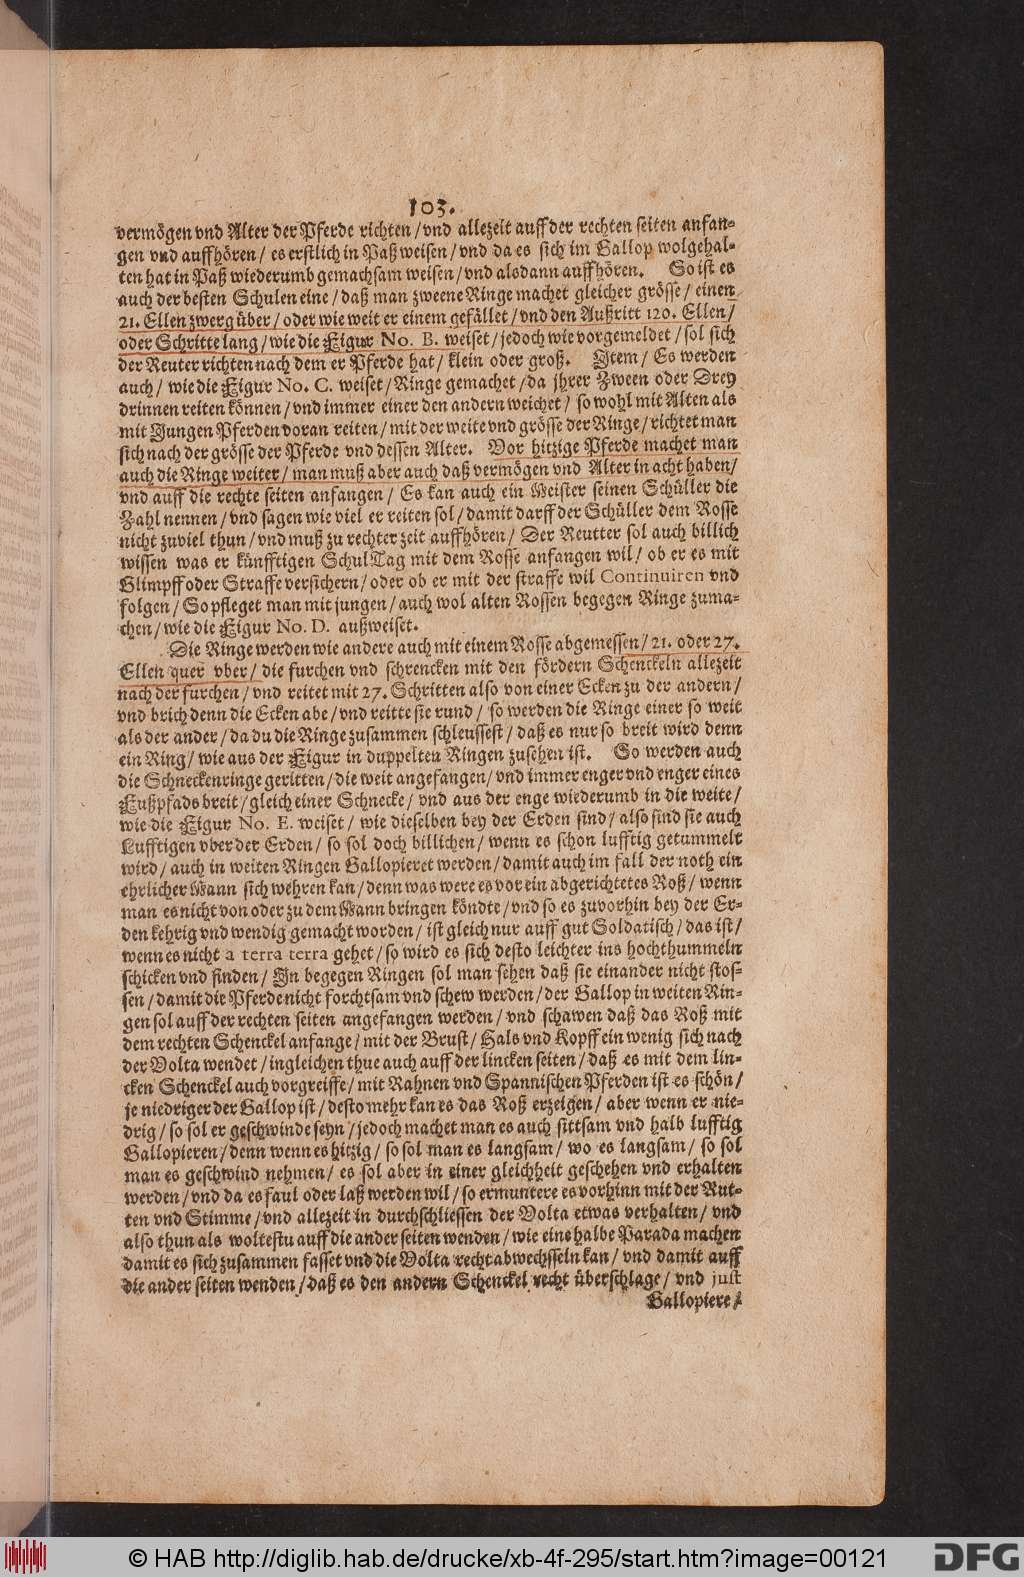 103.
vermögen vnd Alter der Pferde richten / vnd allezeit auff der rechten seiten anfan-
gen vnd auffhören / es erstlich in Paß weisen / vnd da es sich im Gallop wolgehal-
ten hat in Paß wiederumb gemachsam weisen / vnd alsdann auffhören. So ist es
auch der besten Schulen eine / daß man zweene Ringe machet gleicher grösse / einen
21. Ellen zwerg über / oder wie weit er einem gefället / vnd den Außritt 120. Ellen /
oder Schritte lang / wie die Figur No. B. weiset / jedoch wie vorgemeldet / sol sich
der Reuter richten nach dem er Pferde hat / klein oder groß. Item / Es werden
auch / wie die Figur No. C. weiset / Ringe gemachet / da jhrer Zween oder Drey
drinnen reiten können / vnd immer einer den andern weichet / so wohl mit Alten als
mit Jungen Pferden voran reiten / mit der weite vnd grösse der Ringe / richtet man
sich nach der grösse der Pferde vnd dessen Alter. Vor hitzige Pferde machet man
auch die Ringe weiter / man muß aber auch daß vermögen vnd Alter in acht haben /
vnd auff die rechte seiten anfangen / Es kan auch ein Meister seinen Schüller die
Zahl nennen / vnd sagen wie viel er reiten sol / damit darff der Schüller dem Rosse
nicht zuviel thun / vnd muß zu rechter zeit auffhören / Der Reutter sol auch billich
wissen was er künfftigen Schul Tag mit dem Rosse anfangen wil / ob er es mit
Glimpff oder Straffe versichern / oder ob er mit der straffe wil Continuiren vnd
folgen / So pfleget man mit jungen / auch wol alten Rossen begegen Ringe zuma-
chen / wie die Figur No. D. außweiset.
Die Ringe werden wie andere auch mit einem Rosse abgemessen / 21. oder 27.
Ellen quer vber / die furchen vnd schrencken mit den fördern Schenckeln allezeit
nach der furchen / vnd reitet mit 27. Schritten also von einer Ecken zu der andern /
vnd brich denn die Ecken abe / vnd reitte sie rund / so werden die Ringe einer so weit
als der ander / da du die Ringe zusammen schleussest / daß es nur so breit wird denn
ein Ring / wie aus der Figur in duppelten Ringen zusehen ist. So werden auch
die Schneckenringe geritten / die weit angefangen / vnd immer enger vnd enger eines
Fußpfads breit / gleich einer Schnecke / vnd aus der enge wiederumb in die weite /
wie die Figur No. E. weiset / wie dieselben bey der Erden sind / also sind sie auch
Lufftigen vber der Erden / so sol doch billichen / wenn es schon lufftig getummelt
wird / auch in weiten Ringen Gallopieret werden / damit auch im fall der noth ein
ehrlicher Mann sich wehren kan / denn was were es vor ein abgerichtetes Roß / wenn
man es nicht von oder zu dem Mann bringen köndte / vnd so es zuvorhin bey der Er-
den kehrig vnd wendig gemacht worden / ist gleich nur auff gut Soldatisch / das ist /
wenn es nicht a terra terra gehet / so wird es sich desto leichter ins hochthummeln
schicken vnd finden / In begegen Ringen sol man sehen daß sie einander nicht stos-
sen / damit die Pferde nicht forchtsam vnd schew werden / der Gallop in weiten Rin-
gen sol auff der rechten seiten angefangen werden / vnd schawen daß das Roß mit
dem rechten Schenckel anfange / mit der Brust / Hals vnd Kopff ein wenig sich nach
der Volta wendet / ingleichen thue auch auff der lincken seiten / daß es mit dem lin-
cken Schenckel auch vorgreiffe / mit Rahnen vnd Spannischen Pferden ist es schön /
je niedriger der Gallop ist / desto mehr kan es das Roß erzeigen / aber wenn er nie-
drig / so sol er geschwinde seyn / jedoch machet man es auch sittsam vnd halb lufftig
Gallopieren / denn wenn es hitzig / so sol man es langsam / wo es langsam / so sol
man es geschwind nehmen / es sol aber in einer gleichheit geschehen vnd erhalten
werden / vnd da es faul oder laß werden wil / so ermuntere es vorhinn mit der Rut-
ten vnd Stimme / vnd allezeit in durchschliessen der Volta etwas verhalten / vnd
also thun als woltestu auff die ander seiten wenden / wie eine halbe Parada machen
damit es sich zusammen fasset vnd die Volta recht abwechsseln kan / vnd damit auff
die ander seiten wenden / daß es den andern Schenckel recht überschlage / vnd just
Gallopiere /
© HAB http://diglib.hab.de/drucke/xb-4f-295/start.htm?image=00121
DFG